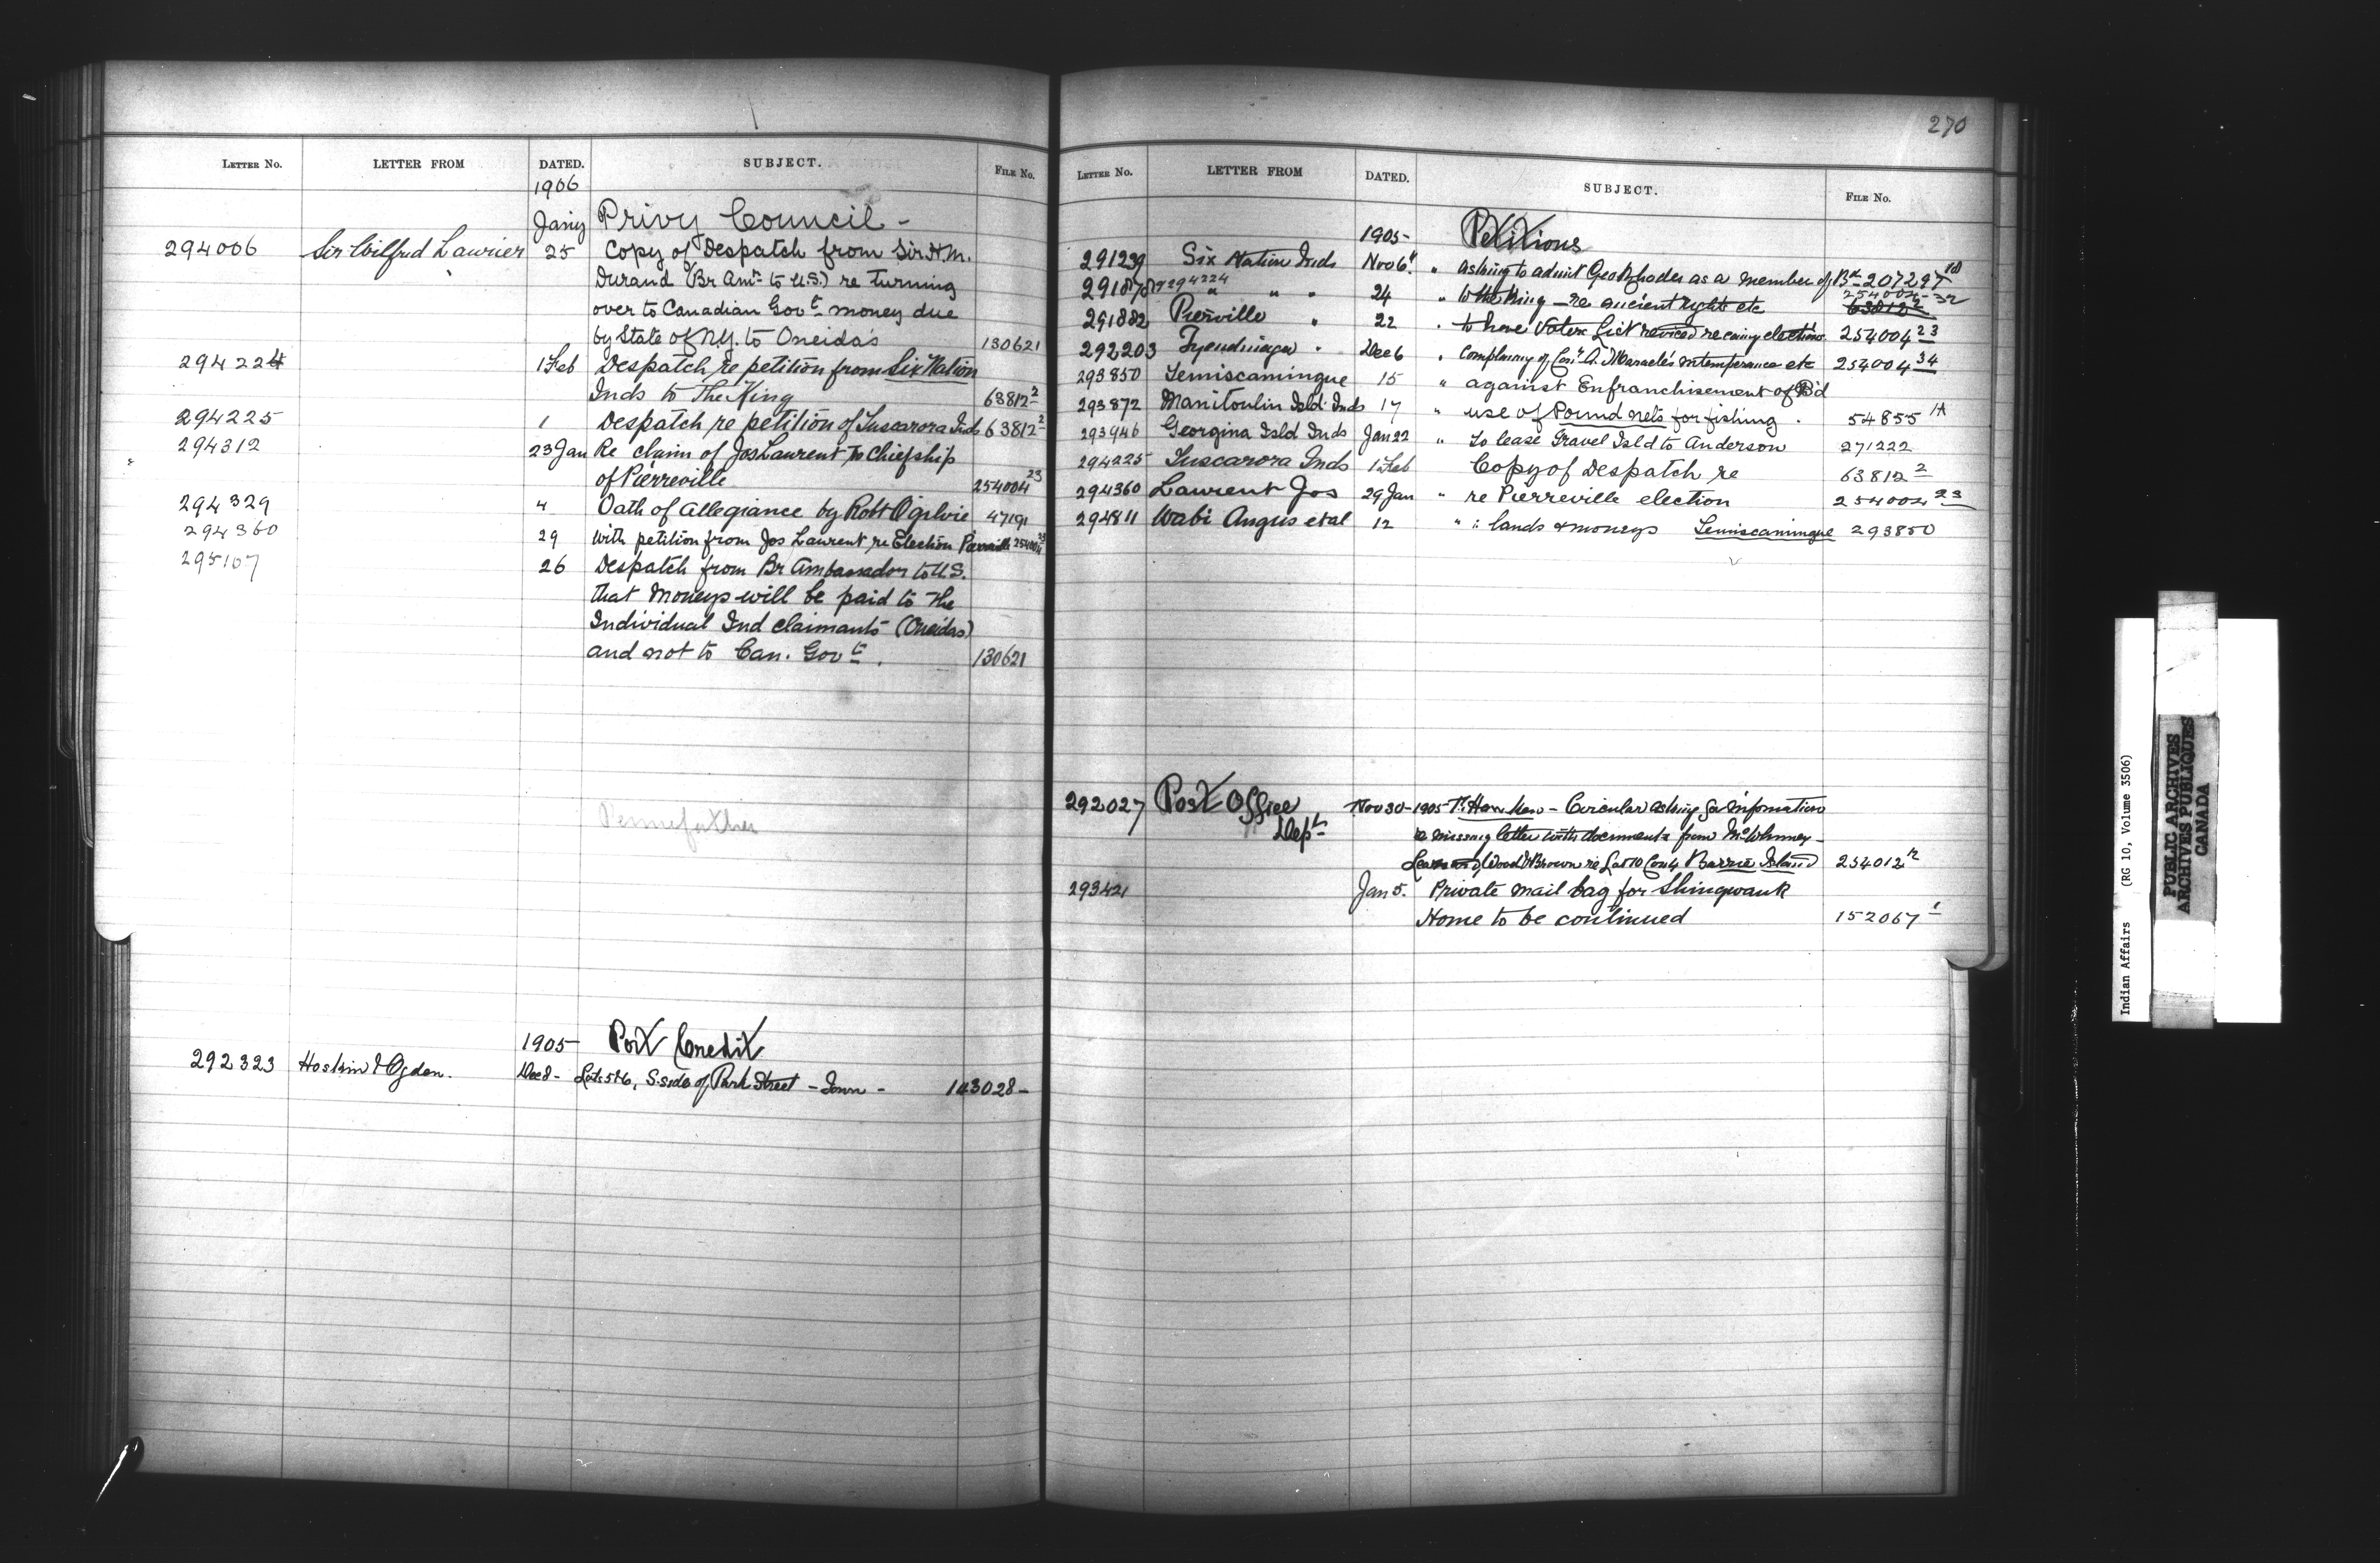 LETTER No. LETTER FROM DATED. SUBJECT. FILE No.
1906
Jany Privy Council -
294006 Sir Wilfred Laurier 25 Copy of Despatch from Sir H.M.
Durand (Br Amr to U.S.) re turning
over to Canadian Govt money due
by State of N.Y. to Oneida's 130621
294224 1 Feb Despatch re petition from Six Nation
Inds to The King 63812 2
294225 1 Despatch re petition of Tuscarora Inds 63812 2
294312 23 Jan Re claim of Jos Laurent to Chiefship
of Pierreville 254004 23
294329 4 Oath of allegiance by Robt Ogilvie 47191
294360 29 With petition from Jos Laurent re Election Pierreville 254004 23
295107 26 Despatch from Br Ambassador to U.S.
that moneys will be paid to the
Individual Ind claimants (Oneidas)
and not to Can. Govt. 130621
Pennefather
1905- Port Credit
292323 Hoskin & Ogden. Dec 8- Lots 5 & 6, S. side of Park Street - Town - 143028-
270
LETTER No. LETTER FROM DATED. SUBJECT. FILE No.
1905- Petitions
291239 Six Nation Inds Nov 6 " asking to admit Geo Rhodes as a member of Bd 207297 10
291878 294224 " " " 24 " to the King - re ancient rights etc 254004-32 63812 2
291882 Pierville " 22 " to have Voters List revised re coming elections 254004 23
292203 Tyendinaga " Dec 6 " Complaing of Conr A. Maracle's intemperance etc 254004 34
293850 Temiscamingue 15 " against Enfranchisement of Bd
293872 Manitoulin Isld Inds 17 " use of Pound nets for fishing. 54855 1A
293946 Georgina Isld Inds Jan 22 " To lease Gravel Isld to Anderson 271222
294225 Tuscarora Inds 1 Feb Copy of Despatch re 63812 2
294360 Laurent Jos 29 Jan " re Pierreville election 254004 23
294811 Wabi Angus et al 12 " " lands & moneys Temiscamingue 293850
292027 Post Office Dept Nov 30-1905- - Circular asking for information
re missing letter with documents from McWhinney-
Wood & Brown re Lot 10 Con 4 Barrie Island 254012 12
293421 Jan 5. Private mail bag for Shingwauk
Home to be continued 152067 1
Indian Affairs (RG 10, Volume 3506)
PUBLIC ARCHIVES
ARCHIVES PUBLIQUES
CANADA